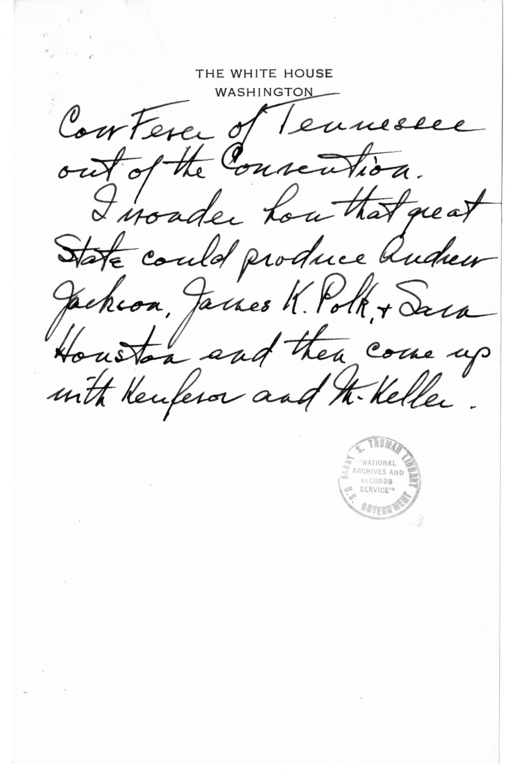 THE WHITE HOUSE
WASHINGTON
Cow Fever of Tennessee
out of the Convention.
I wonder how that great
State could produce Andrew
Jackson, James K. Polk, + Sam
Houston and then come up
with Keufevor and McKeller.
HARRY S. TRUMAN LIBRARY
"NATIONAL
ARCHIVES AND
RECORDS
SERVICE"
U.S. GOVERNMENT